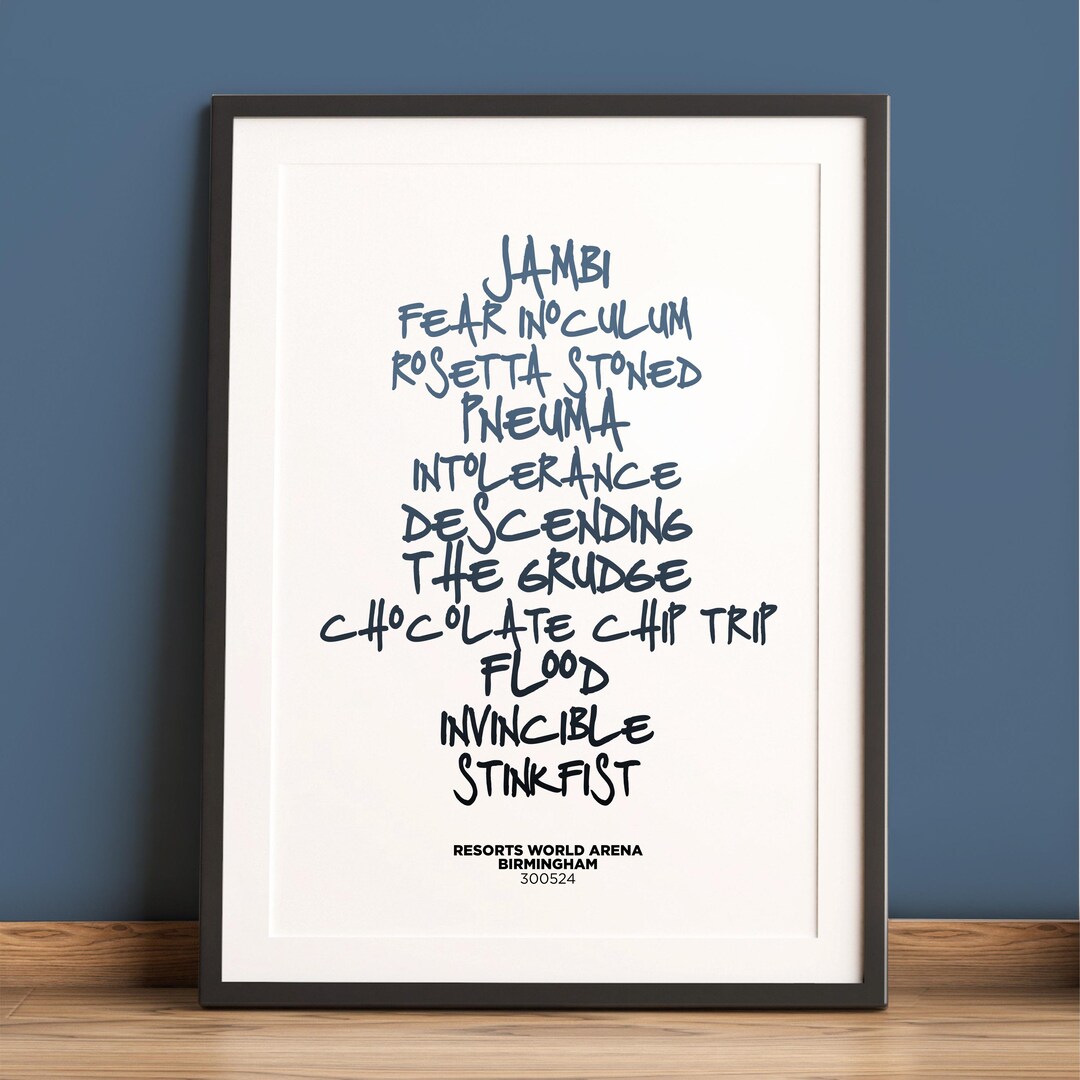 JAMBI
FEAR INOCULUM
ROSETTA STONED
PNEUMA
INTOLERANCE
DESCENDING
THE GRUDGE
CHOCOLATE CHIP TRIP
FLOOD
INVINCIBLE
STINKFIST
RESORTS WORLD ARENA
BIRMINGHAM
300524